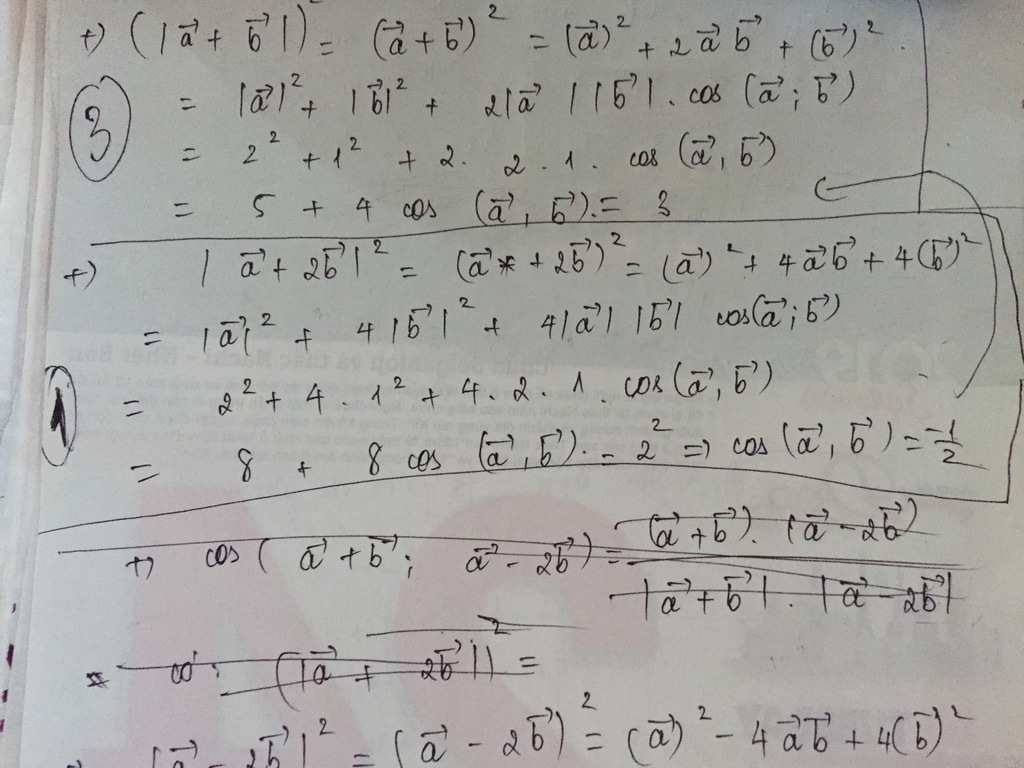 +) (|a⃗ + b⃗|)² = (a⃗ + b⃗)² = (a⃗)² + 2a⃗b⃗ + (b⃗)².
③ = |a⃗|² + |b⃗|² + 2|a⃗||b⃗|. cos (a⃗; b⃗)
= 2² + 1² + 2. 2. 1. cos (a⃗, b⃗)
= 5 + 4 cos (a⃗, b⃗). = 3
+) |a⃗ + 2b⃗|² = (a⃗ + 2b⃗)² = (a⃗)² + 4a⃗b⃗ + 4(b⃗)²
= |a⃗|² + 4|b⃗|² + 4|a⃗||b⃗| cos(a⃗; b⃗)
① = 2² + 4. 1² + 4. 2. 1 cos(a⃗, b⃗)
= 8 + 8 cos (a⃗, b⃗). = 2² ⇒ cos (a⃗, b⃗) = -1/2
+) cos( a⃗ + b⃗; a⃗ - 2b⃗) = (a⃗ + b⃗). (a⃗ - 2b⃗) / |a⃗ + b⃗|. |a⃗ - 2b⃗|
(|a⃗ + 2b⃗|)² =
|a⃗ - 2b⃗|² = (a⃗ - 2b⃗)² = (a⃗)² - 4a⃗b⃗ + 4(b⃗)²